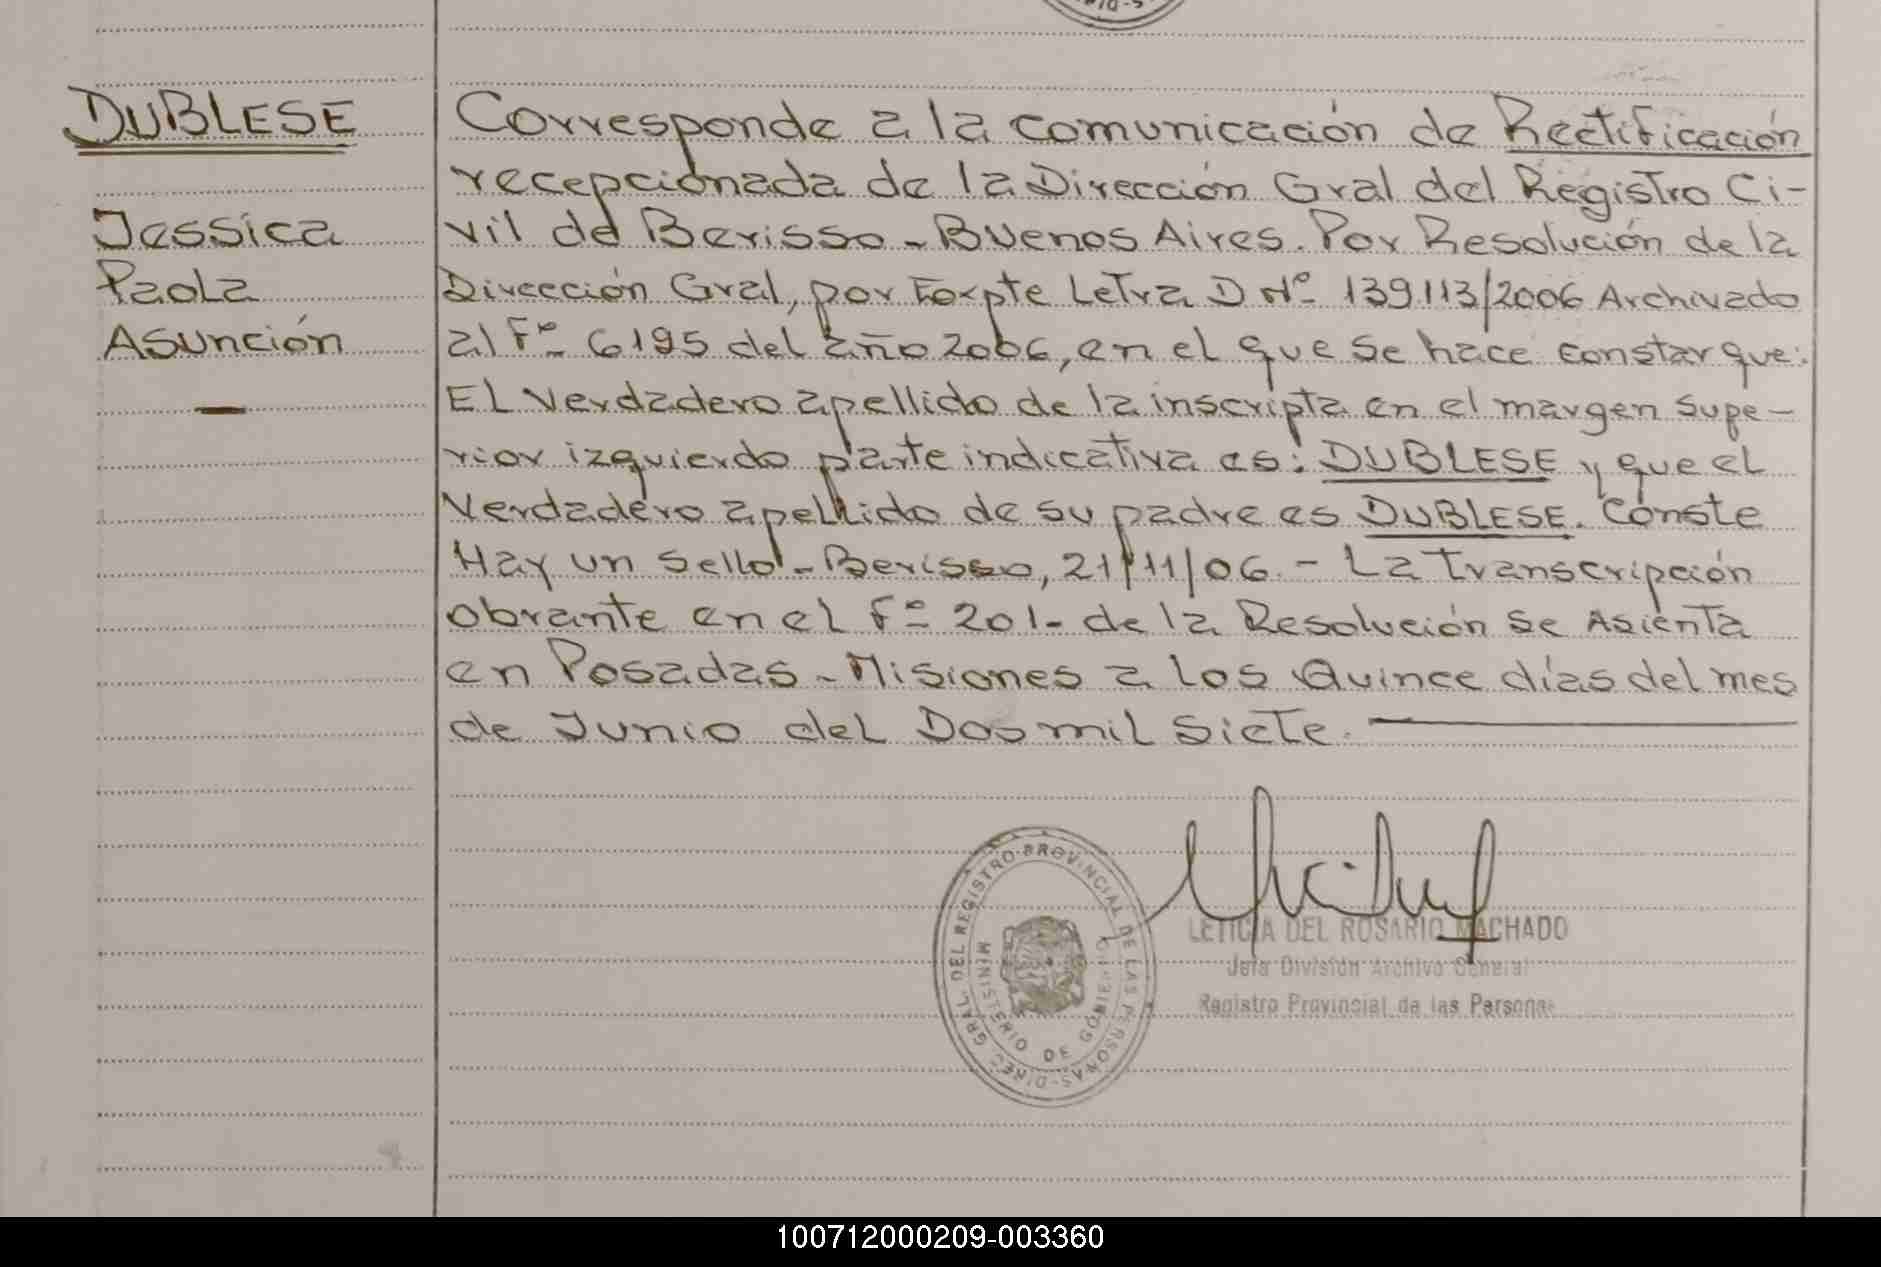 DUBLESE
Jessica
Paola
Asunción
Corresponde a la comunicación de Rectificación
recepcionada de la Dirección Gral del Registro Ci-
vil de Berisso - Buenos Aires. Por Resolución de la
Dirección Gral, por Expte Letra D Nº 139.113/2006 Archivado
al Fº 6195 del año 2006, en el que se hace constar que:
El verdadero apellido de la inscripta en el margen supe-
rior izquierdo parte indicativa es: DUBLESE y que el
Verdadero apellido de su padre es DUBLESE. Conste
Hay un sello - Berisso, 21/11/06. - La Transcripción
obrante en el Fº 201- de la Resolución se Asienta
en Posadas - Misiones a los Quince días del mes
de Junio del Dos mil Siete.
DIREC. GRAL. DEL REGISTRO PROVINCIAL DE LAS PERSONAS
MINISTERIO DE GOBIERNO
LETICIA DEL ROSARIO MACHADO
Jefa División Archivo General
Registro Provincial de las Personas
100712000209-003360